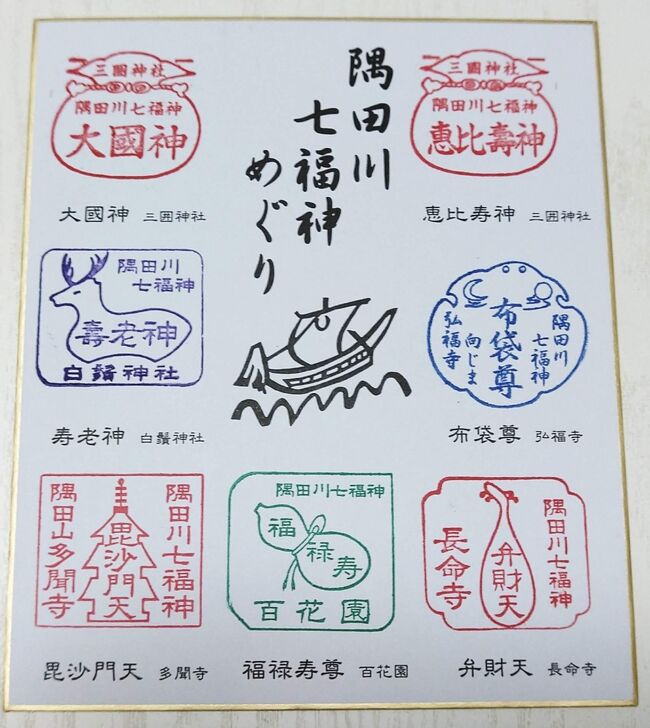 隅田川
七福神
めぐり
三圍神社
隅田川七福神
大國神
大國神 三囲神社
三圍神社
隅田川七福神
恵比壽神
恵比寿神 三囲神社
隅田川
七福神
壽老神
白鬚神社
寿老神 白鬚神社
隅田川
七福神
布袋尊
向じま
弘福寺
布袋尊 弘福寺
隅田川七福神
毘沙門天
隅田山多聞寺
毘沙門天 多聞寺
隅田川七福神
福禄寿
百花園
福禄寿尊 百花園
隅田川七福神
弁財天
長命寺
弁財天 長命寺